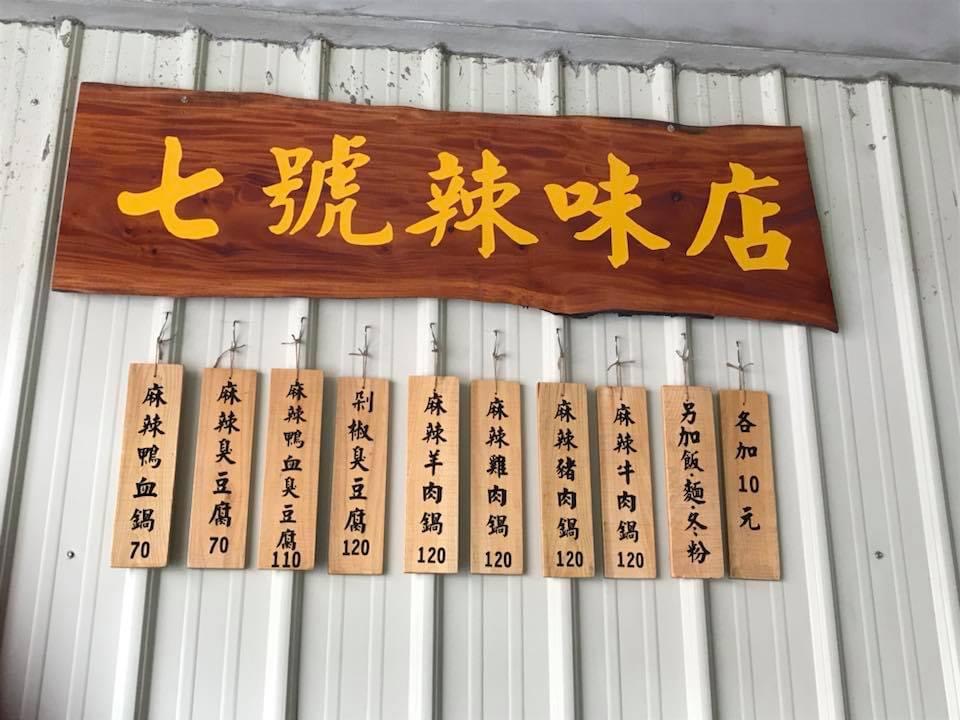 七號辣味店
麻辣鴨血鍋70
麻辣臭豆腐70
麻辣鴨血臭豆腐110
剁椒臭豆腐120
麻辣羊肉鍋120
麻辣雞肉鍋120
麻辣豬肉鍋120
麻辣牛肉鍋120
另加飯·麵·冬粉
各加10元